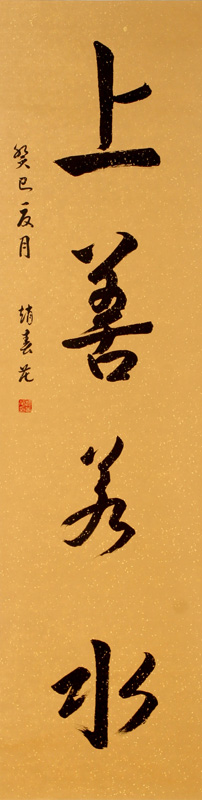 上善若水
癸巳夏月 趙春花